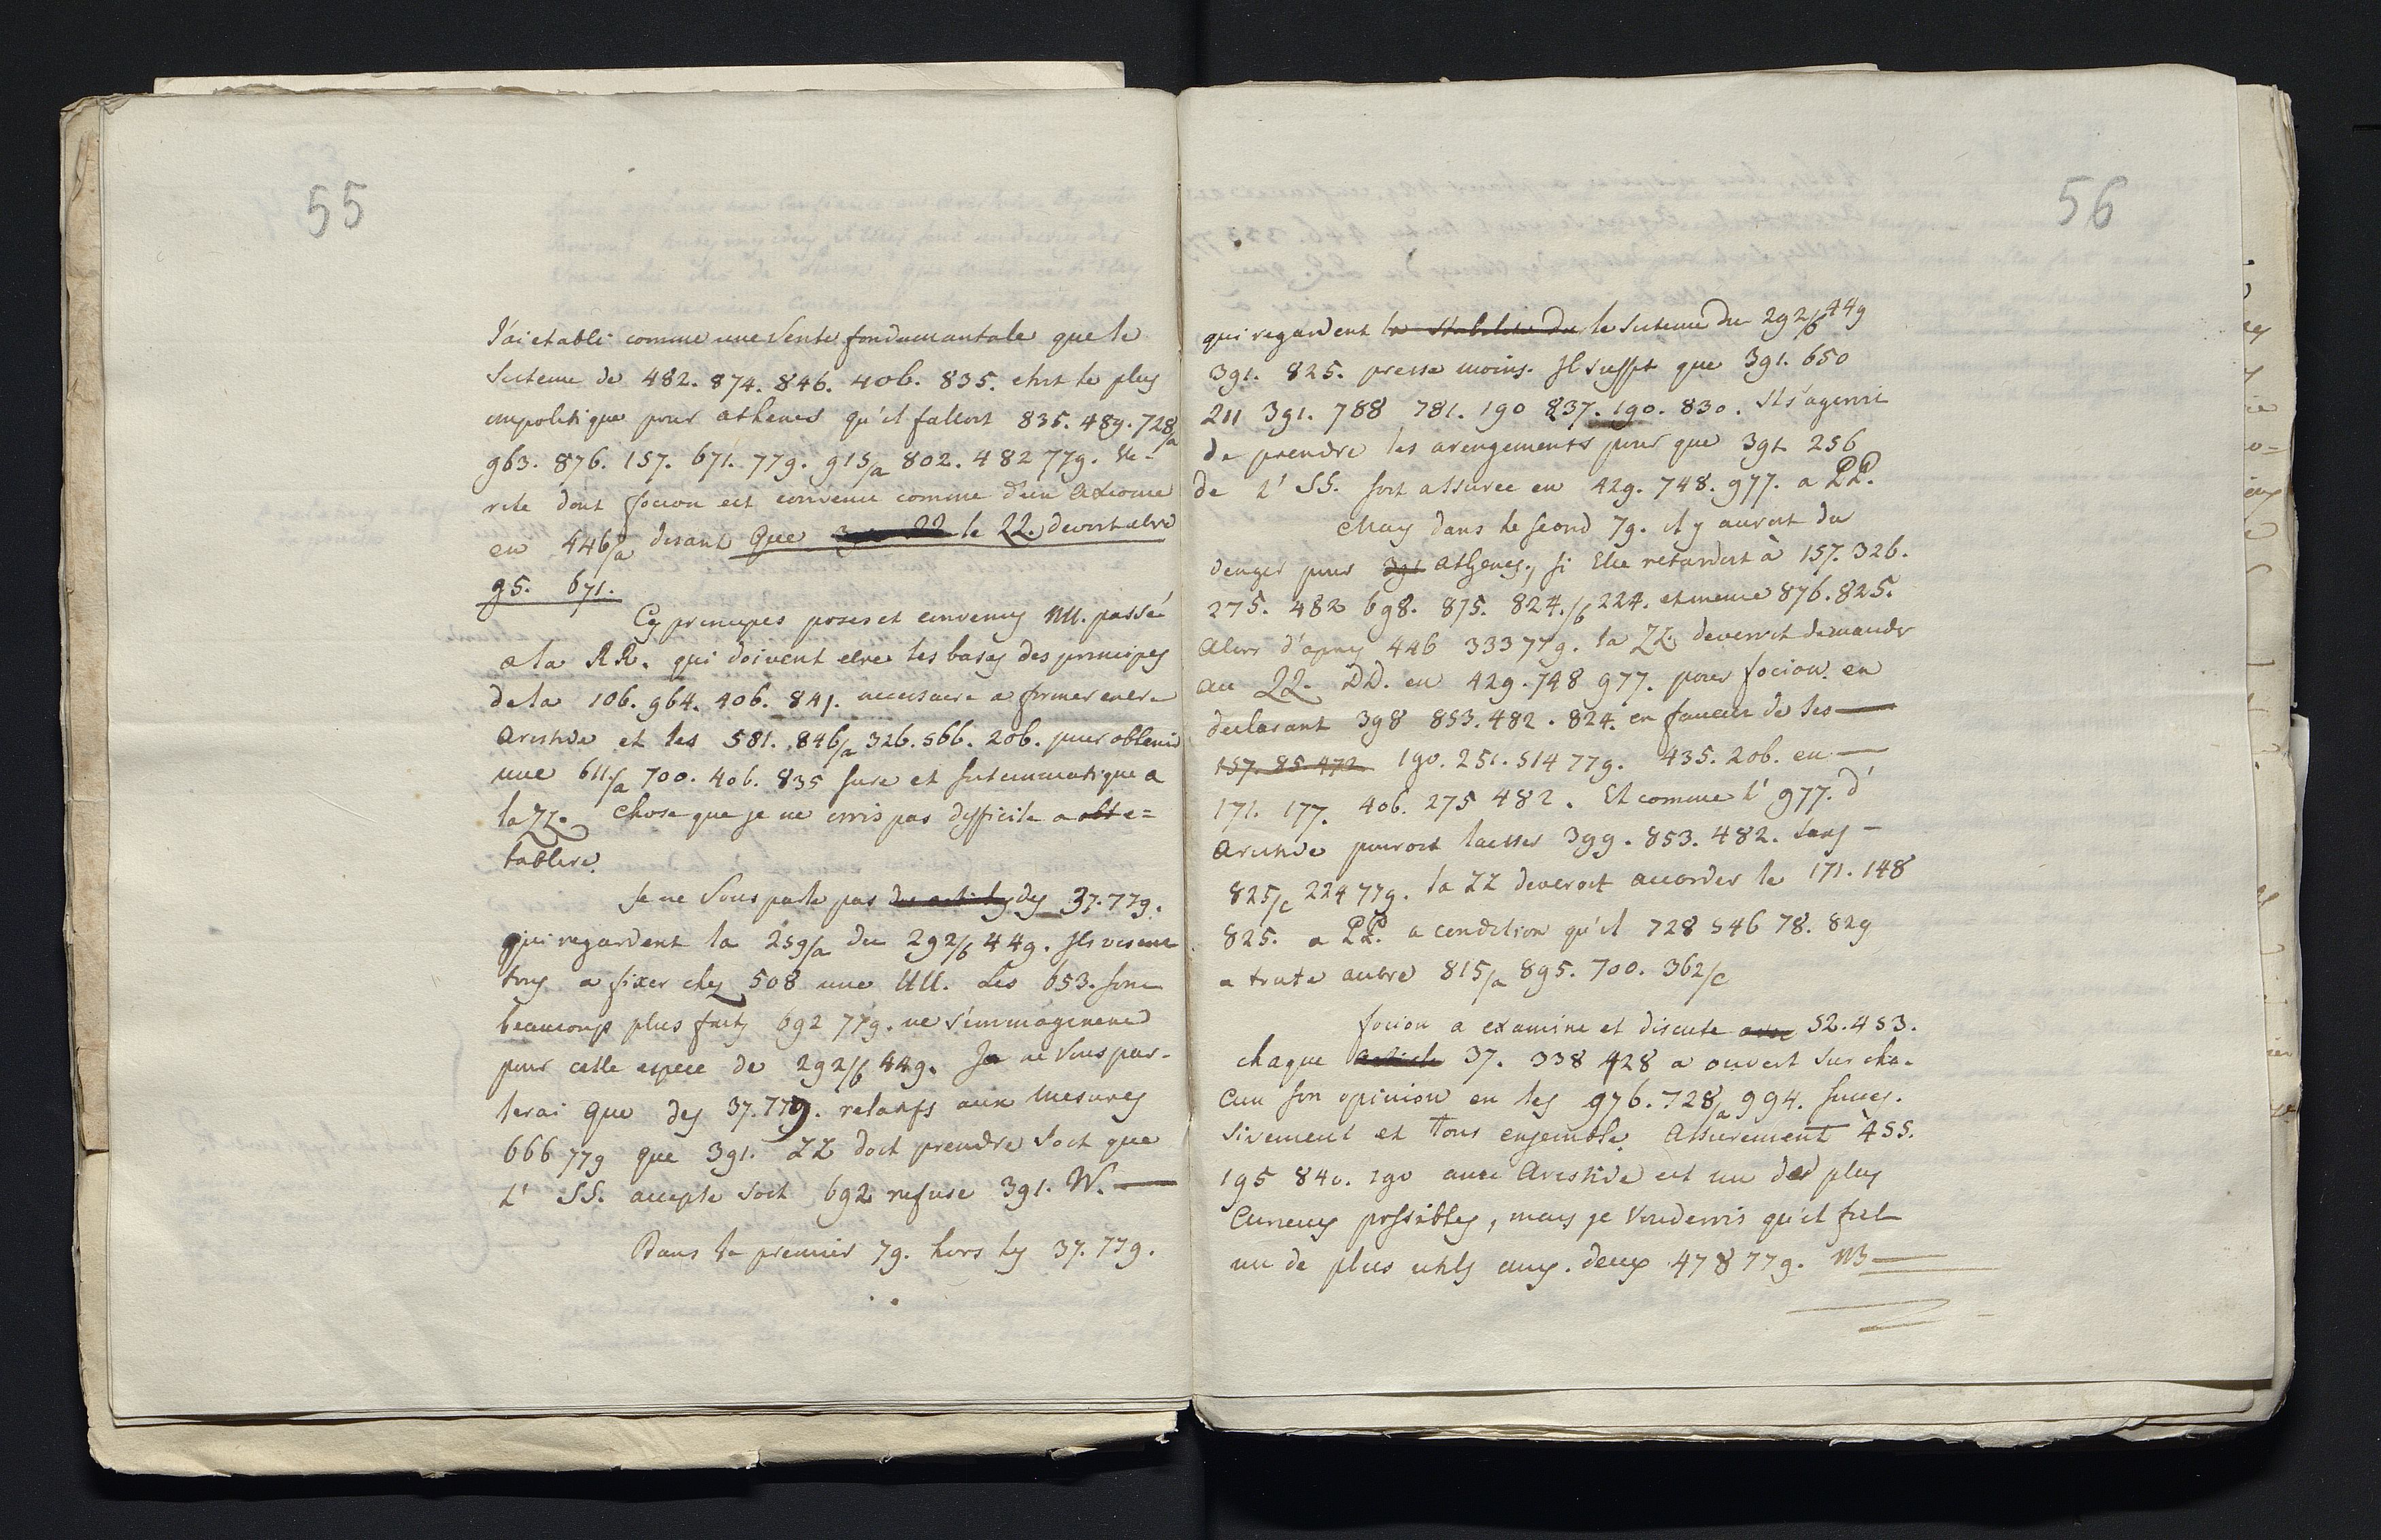 55
J'ai etabli comme une verite fondamantale que le
Sisteme de 482. 874. 846. 406. 835. etoit le plus
impolitique pour athenes qu'il falloit 835. 489. 728/a
963. 876. 157. 671. 779. 915/a 802. 482 779. Ve-
rite dont focion est convenu comme d'un Axiome
en 446/a disant que le 22. devoit etre
95. 671.
Ces principes poses et convenus M. passé
a la RR. qui doivent etre les bases des principes
de la 106. 964. 406. 841. necessaire a former entre
Aristide et les 581. 846/a 326. 566. 206. pour obtenir
une 611/a 700. 406. 835 sure et sistematique a
la ZZ. Chose que je ne crois pas difficile a obte=
tablire.
Je ne Vous parle pas des articles des 37. 779.
qui regardent la 259/a du 292/b 449. Ils visent
tous a fixer chez 508 une UU. Les 653. sont
beaucoup plus forts 692 779. ne s'immaginent
pour cette espece de 292/b 449. Je ne Vous par-
lerai que des 37. 779. relatifs aux mesures
666 779 que 391. ZZ doit prendre soit que
L' SS. accepte soit 692 refuse 391. W. —
Dans le premier 79. hors les 37. 779.
56
qui regardent la Stabilite du le sisteme du 292/b 449
391. 825. presse moins. Il suffit que 391. 650
211 391. 788 781. 190 837. 190. 830. Il s'agiroit
de prendre les arengements pour que 391 256
de L' SS. soit assuree en 429. 748. 977. a PP.
Mais dans le second 79. il y auroit du
denger pour 391 Athenes, si Elle retardoit à 157. 326.
275. 482 698. 875. 824./b 224. et meme 876. 825.
Alors d'apres 446 333 779. la ZZ deveroit demander
au 22. DD. en 429. 748 977. pour focion en
declarant 398 853. 482. 824. en faveur de ses —
157. 85. 472. 190. 251. 514 779. 435. 206. en —
171. 177. 406. 275 482. Et comme l' 977. d'
Aristide pouroit laisser 399. 853. 482. sans —
825/c 224 779. la ZZ deveroit accorder le 171. 148
825. a PP. a condition qu'il 728 546 78. 829
a toute autre 815/a 895. 700. 362/c
focion a examine et discute avec 52. 453.
chaque article 37. 338 428 a ouvert sur cha-
cun son opinion en les 976. 728/a 994. succes-
sivement et Tous ensemble. Assurement 455.
195 840. 190 avec Aristide est un des plus
Curieux possibles, mais je Vouderois qu'il fut
un de plus utils aux deux 478 779. NB —